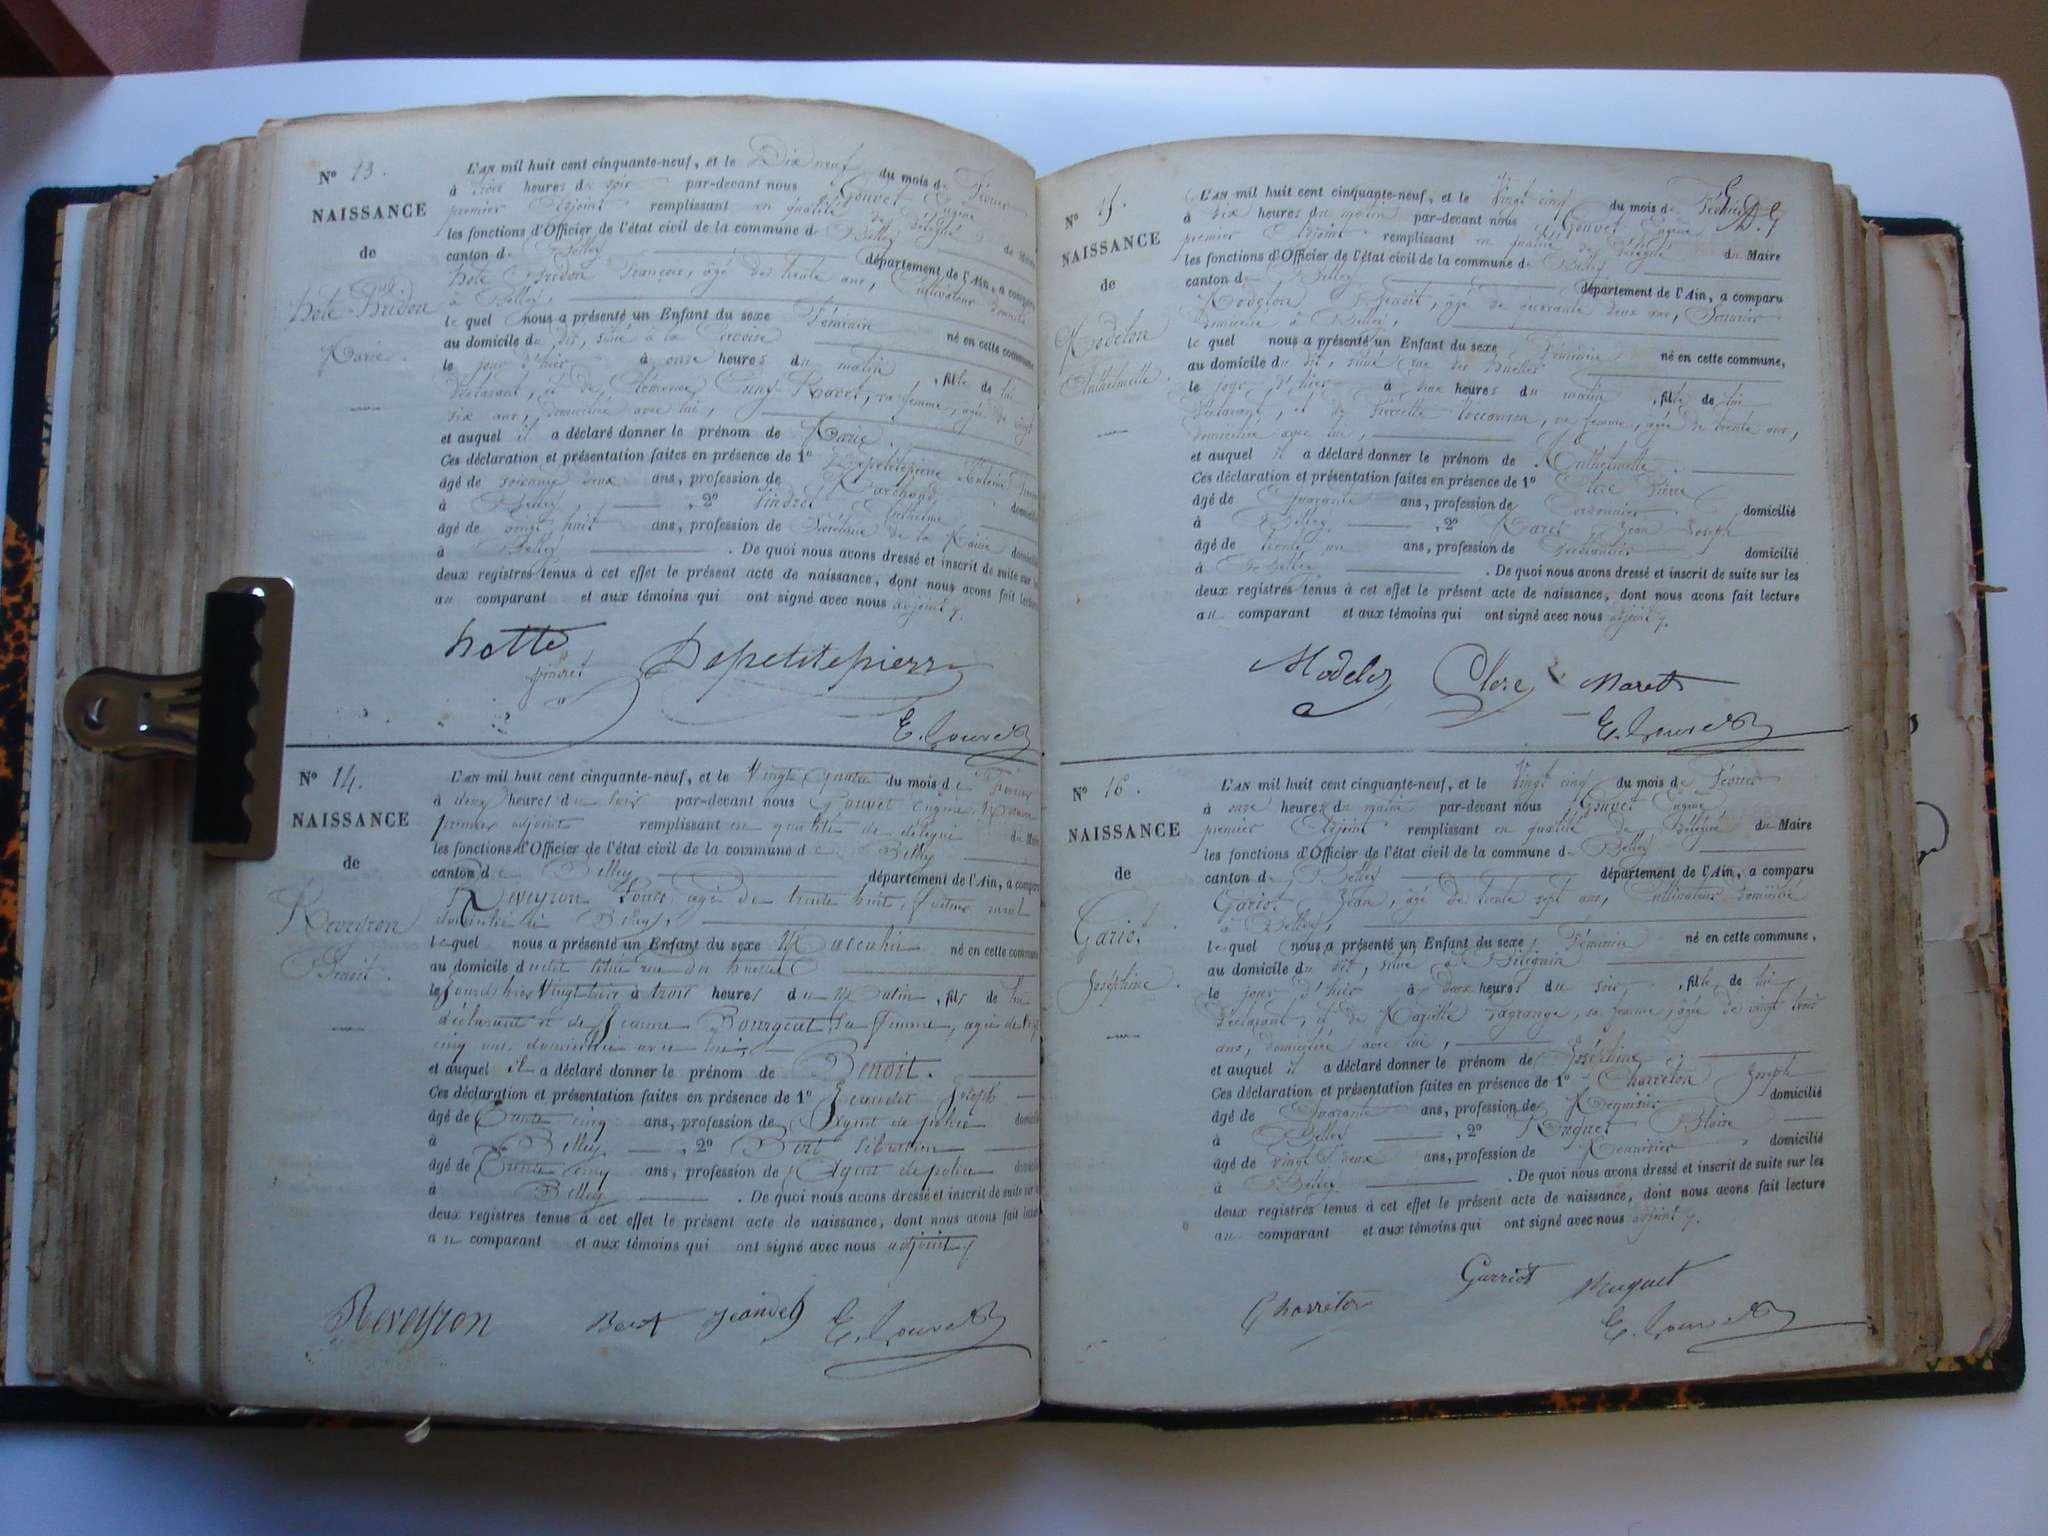 Nº 13.
NAISSANCE
de
hote Bridon
Marie.
L'AN mil huit cent cinquante-neuf, et le Dix neuf du mois de Février
à trois heures du soir par-devant nous Gouvet Eugène
premier Adjoint remplissant en qualité de Délégué du Maire
les fonctions d'Officier de l'état civil de la commune d Belley
canton d Belley département de l'Ain, a comparu
hote Bridon François, âgé de trente ans, Cultivateur domicilié
à Belley,
le quel nous a présenté un Enfant du sexe Féminin né en cette commune
au domicile du dit, situé à la
le jour d'hier à onze heures du matin, fille de lui
déclarant, et de Clémence sa femme, âgée de vingt
six ans, domiciliée avec lui,
et auquel il a déclaré donner le prénom de Marie.
Ces déclaration et présentation faites en présence de 1º Depetitepierre Antoine
âgé de soixante deux ans, profession de Marchand, domicilié
à Belley, 2º Vindret Anthelme
âgé de vingt huit ans, profession de Secrétaire de la Mairie domicilié
à Belley. De quoi nous avons dressé et inscrit de suite sur les
deux registres tenus à cet effet le présent acte de naissance, dont nous avons fait lecture
au comparant et aux témoins qui ont signé avec nous adjoint
hotte
Vindret Depetitepierre
E. Gouvet
Nº 14.
NAISSANCE
de
Reveyron
Benoit.
L'AN mil huit cent cinquante-neuf, et le Vingt quatre du mois de Février
à deux heures du soir par-devant nous Gouvet Eugène
premier adjoint remplissant en qualité de délégué du Maire
les fonctions d'Officier de l'état civil de la commune de Belley
canton de Belley département de l'Ain, a comparu
Reveyron Louis âgé de trente huit, facteur rural
domicilié à Belley,
lequel nous a présenté un Enfant du sexe Masculin né en cette commune
au domicile dudit situé rue des
le jour d'hier Vingt trois à trois heures du Matin, fils de lui
déclarant et de Jeanne Bourgeat sa femme, âgée de
cinq ans, domiciliée avec lui,
et auquel il a déclaré donner le prénom de Benoit.
Ces déclaration et présentation faites en présence de 1º Jeandet Joseph
âgé de trente cinq ans, profession de Agent de police domicilié
à Belley, 2º Bert Sébastien
âgé de trente cinq ans, profession de Agent de police domicilié
à Belley. De quoi nous avons dressé et inscrit de suite sur les
deux registres tenus à cet effet le présent acte de naissance, dont nous avons fait lecture
au comparant et aux témoins qui ont signé avec nous adjoint
Reveyron Bert Jeandet E. Gouvet
Nº 15.
NAISSANCE
de
Modelon
Anthelmette.
L'AN mil huit cent cinquante-neuf, et le Vingt cinq du mois de Février
à dix heures du matin par-devant nous Gouvet Eugène
premier Adjoint remplissant en qualité de Délégué du Maire
les fonctions d'Officier de l'état civil de la commune d Belley
canton d Belley département de l'Ain, a comparu
Modelon Benoit, âgé de quarante deux ans,
domicilié à Belley,
le quel nous a présenté un Enfant du sexe Féminin né en cette commune,
au domicile du dit, situé rue des
le jour d'hier à deux heures du matin, fille de lui
déclarant, et de Pierrette sa femme, âgée de trente ans,
domiciliée avec lui,
et auquel il a déclaré donner le prénom de Anthelmette.
Ces déclaration et présentation faites en présence de 1º Clerc Pierre
âgé de Quarante ans, profession de Cordonnier domicilié
à Belley, 2º Maret Jean Joseph
âgé de trente un ans, profession de domicilié
à Belley. De quoi nous avons dressé et inscrit de suite sur les
deux registres tenus à cet effet le présent acte de naissance, dont nous avons fait lecture
au comparant et aux témoins qui ont signé avec nous adjoint
Modelon Clerc Maret
E. Gouvet
Nº 16.
NAISSANCE
de
Gariot
Joséphine.
L'AN mil huit cent cinquante-neuf, et le Vingt cinq du mois de Février
à onze heures du matin par-devant nous Gouvet Eugène
premier Adjoint remplissant en qualité de Délégué du Maire
les fonctions d'Officier de l'état civil de la commune d Belley
canton d Belley département de l'Ain, a comparu
Gariot Jean, âgé de trente sept ans, Cultivateur domicilié
à Belley,
le quel nous a présenté un Enfant du sexe Féminin né en cette commune,
au domicile du dit, situé à
le jour d'hier à deux heures du soir, fille de lui
déclarant, et de Mariette Lagrange, sa femme, âgée de vingt trois
ans, domiciliée avec lui,
et auquel il a déclaré donner le prénom de Joséphine.
Ces déclaration et présentation faites en présence de 1º Charreton Joseph
âgé de Quarante ans, profession de Menuisier domicilié
à Belley, 2º Huguet
âgé de vingt deux ans, profession de Menuisier domicilié
à Belley. De quoi nous avons dressé et inscrit de suite sur les
deux registres tenus à cet effet le présent acte de naissance, dont nous avons fait lecture
au comparant et aux témoins qui ont signé avec nous adjoint
Charreton Garriot Huguet
E. Gouvet